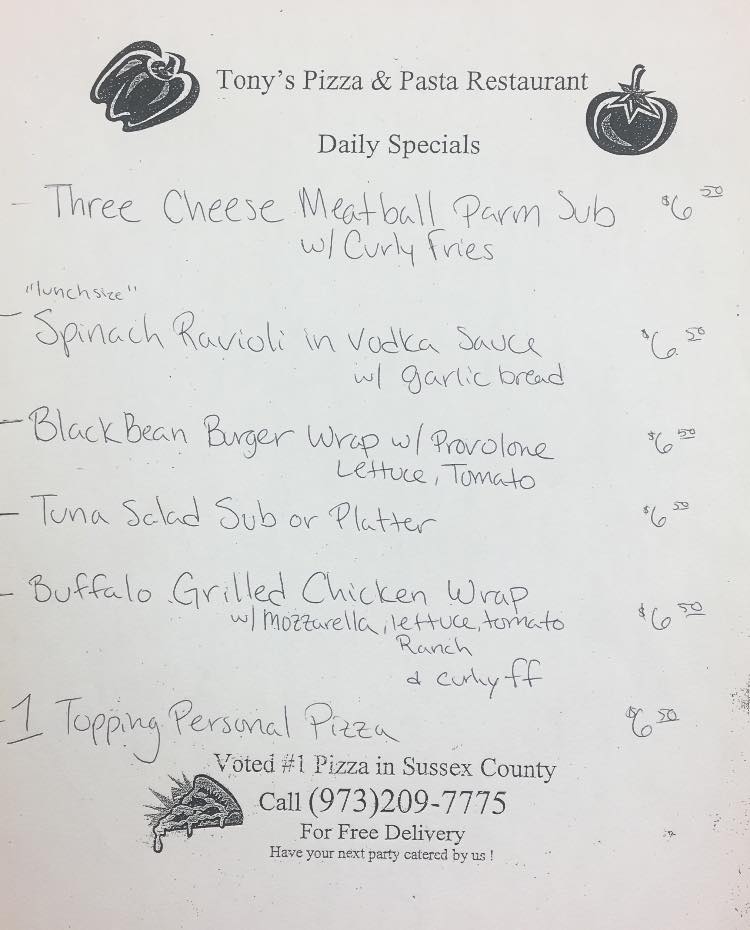 Tony's Pizza & Pasta Restaurant
Daily Specials
- Three Cheese Meatball Parm Sub $6 50
w/ Curly Fries
"lunch size"
- Spinach Ravioli in Vodka Sauce $6. 50
w/ garlic bread
- Black Bean Burger Wrap w/ Provolone $6 50
Lettuce, Tomato
- Tuna Salad Sub or Platter $6 50
- Buffalo Grilled Chicken Wrap
w/ Mozzarella, lettuce, tomato $6 50
Ranch
& curly ff
- 1 Topping Personal Pizza $6 50
Voted #1 Pizza in Sussex County
Call (973)209-7775
For Free Delivery
Have your next party catered by us !